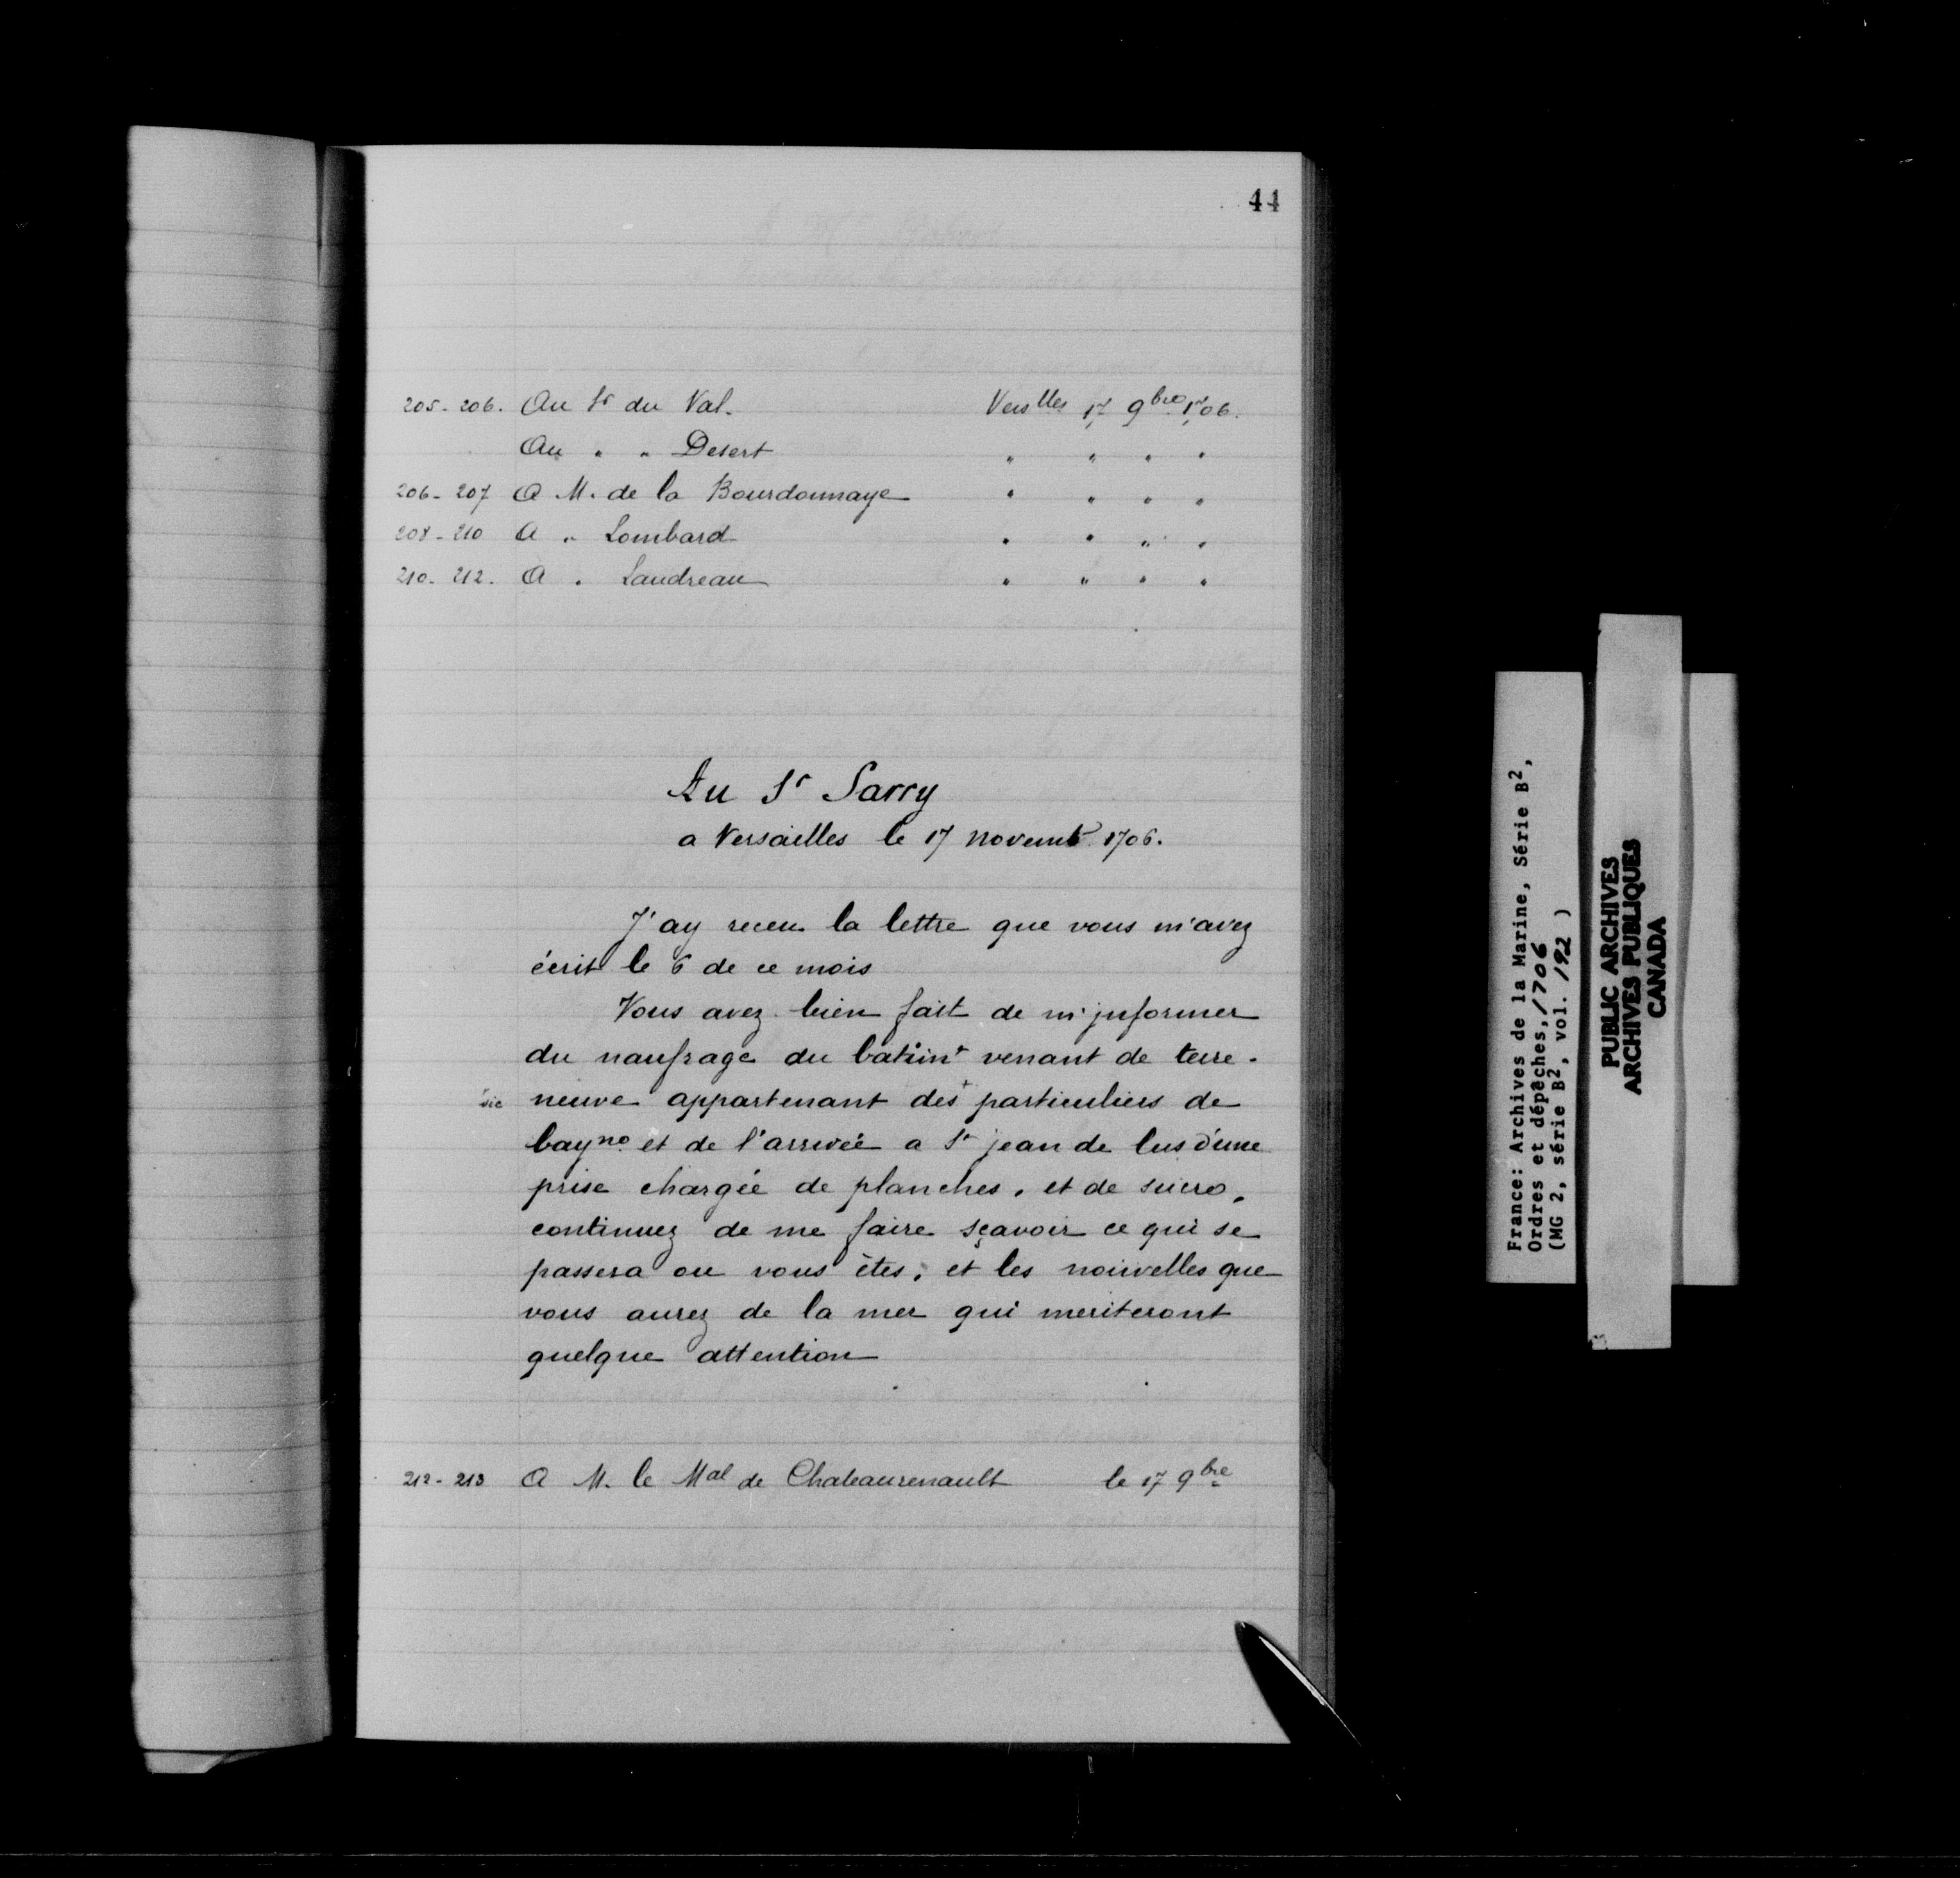 44
205-206. Au Sr du Val. Verslles 17 9bre 1706.
Au " " Desert " " " "
206-207 A M. de la Bourdonnaye " " " "
208-210 A " Lombard " " " "
210-212. A " Landreau " " " "
Au Sr Sarry
a Versailles le 17 novembr 1706.
J'ay receu la lettre que vous m'avez
écrit le 6 de ce mois
Vous avez bien fait de m'jnformer
du naufrage du batimt venant de terre-
sic neuve appartenant des+ particuliers de
bayne et de l'arrivée a St jean de lus d'une
prise chargée de planches, et de sucre,
continuez de me faire sçavoir ce qui se
passera ou vous êtes, et les nouvelles que
vous aurez de la mer qui meriteront
quelque attention
212-213 A M. le Mal de Chateaurenault le 17 9bre
France: Archives de la Marine, Série B2,
Ordres et dépêches, 1706
(MG 2, série B2, vol. 192 )
PUBLIC ARCHIVES
ARCHIVES PUBLIQUES
CANADA